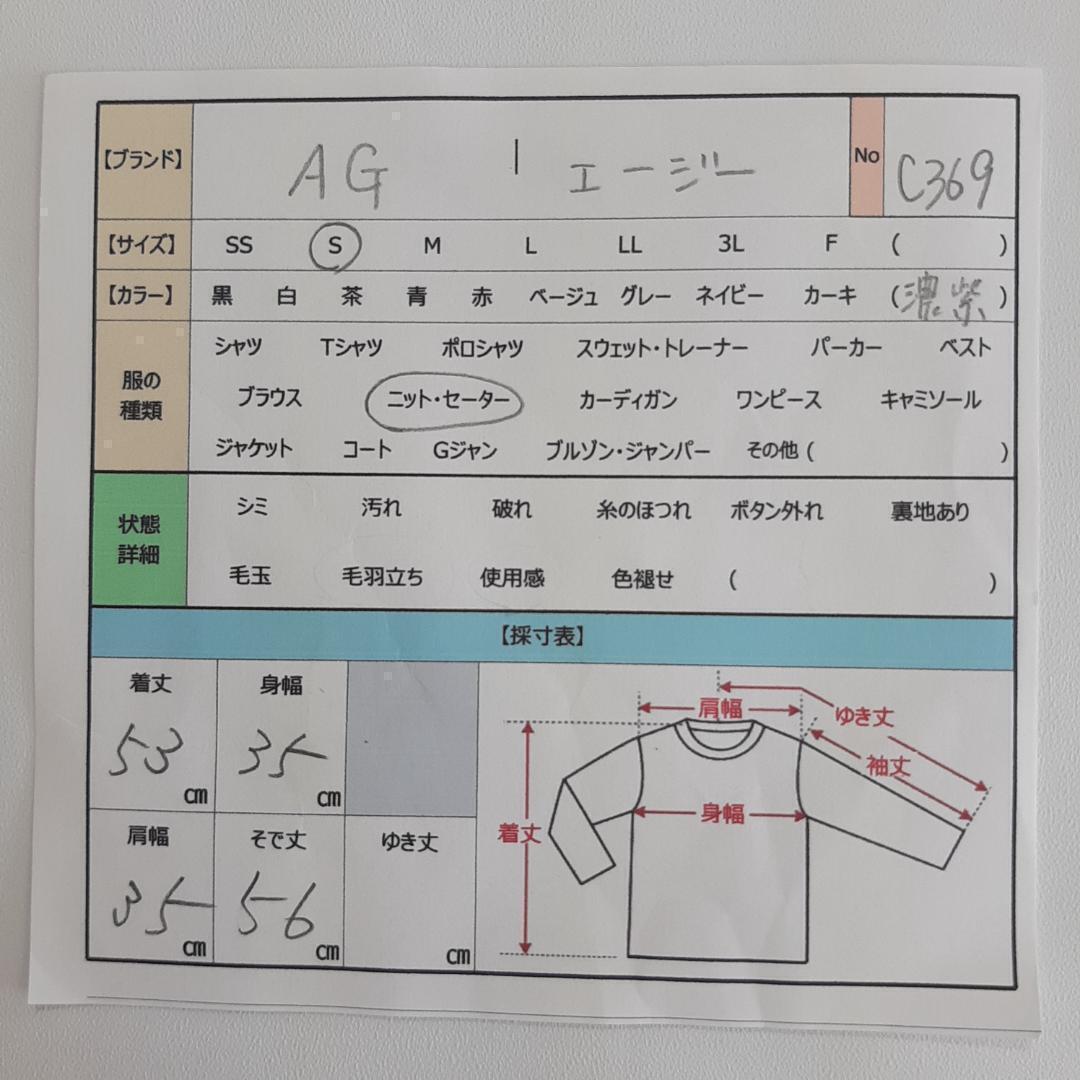 【ブランド】 AG | エージー No C369
【サイズ】 SS S M L LL 3L F ( )
【カラー】 黒 白 茶 青 赤 ベージュ グレー ネイビー カーキ (濃紫)
服の種類
シャツ Tシャツ ポロシャツ スウェット・トレーナー パーカー ベスト
ブラウス ニット・セーター カーディガン ワンピース キャミソール
ジャケット コート Gジャン ブルゾン・ジャンパー その他 ( )
状態詳細
シミ 汚れ 破れ 糸のほつれ ボタン外れ 裏地あり
毛玉 毛羽立ち 使用感 色褪せ ( )
【採寸表】
着丈 身幅
53 cm 35 cm
肩幅 そで丈 ゆき丈
35 cm 56 cm cm
肩幅 ゆき丈
袖丈
着丈 身幅